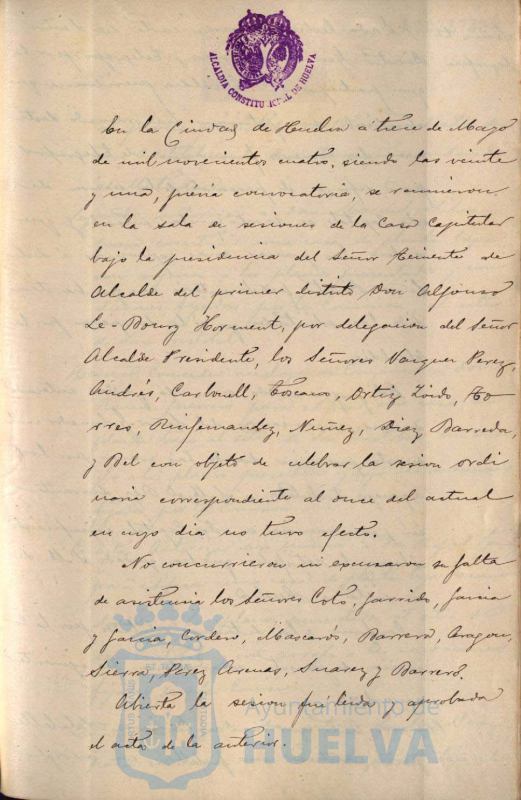 ALCALDIA CONSTITUCIONAL DE HUELVA
En la Ciudad de Huelva á trece de Mayo
de mil novecientos cuatro, siendo las veinte
y una, prévia convocatoria, se reunieron
en la sala de sesiones de la Casa Capitular
bajo la presidencia del Señor Teniente de
Alcalde del primer distrito Don Alfonso
Le-Bourg Horment, por delegacion del Señor
Alcalde Presidente, los Señores Vazquez Perez,
Andrés, Carbonell, Toscano, Ortiz Toido, To-
rres, Rinfernandez, Nuñez, Diaz Barreda,
y Bel con objeto de celebrar la sesion ordi
naria correspondiente al once del actual
en cuyo dia no tuvo efecto.
No concurrieron ni excusaron su falta
de asistencia los Señores Coto, Garrido, Garcia
y Garcia, Cordero, Mascarós, Barrera, Aragon,
Sierra, Perez Arenas, Suarez y Barrero.
Abierta la sesion fué leida y aprobada
el acta de la anterior.
Ayuntamiento de
HUELVA